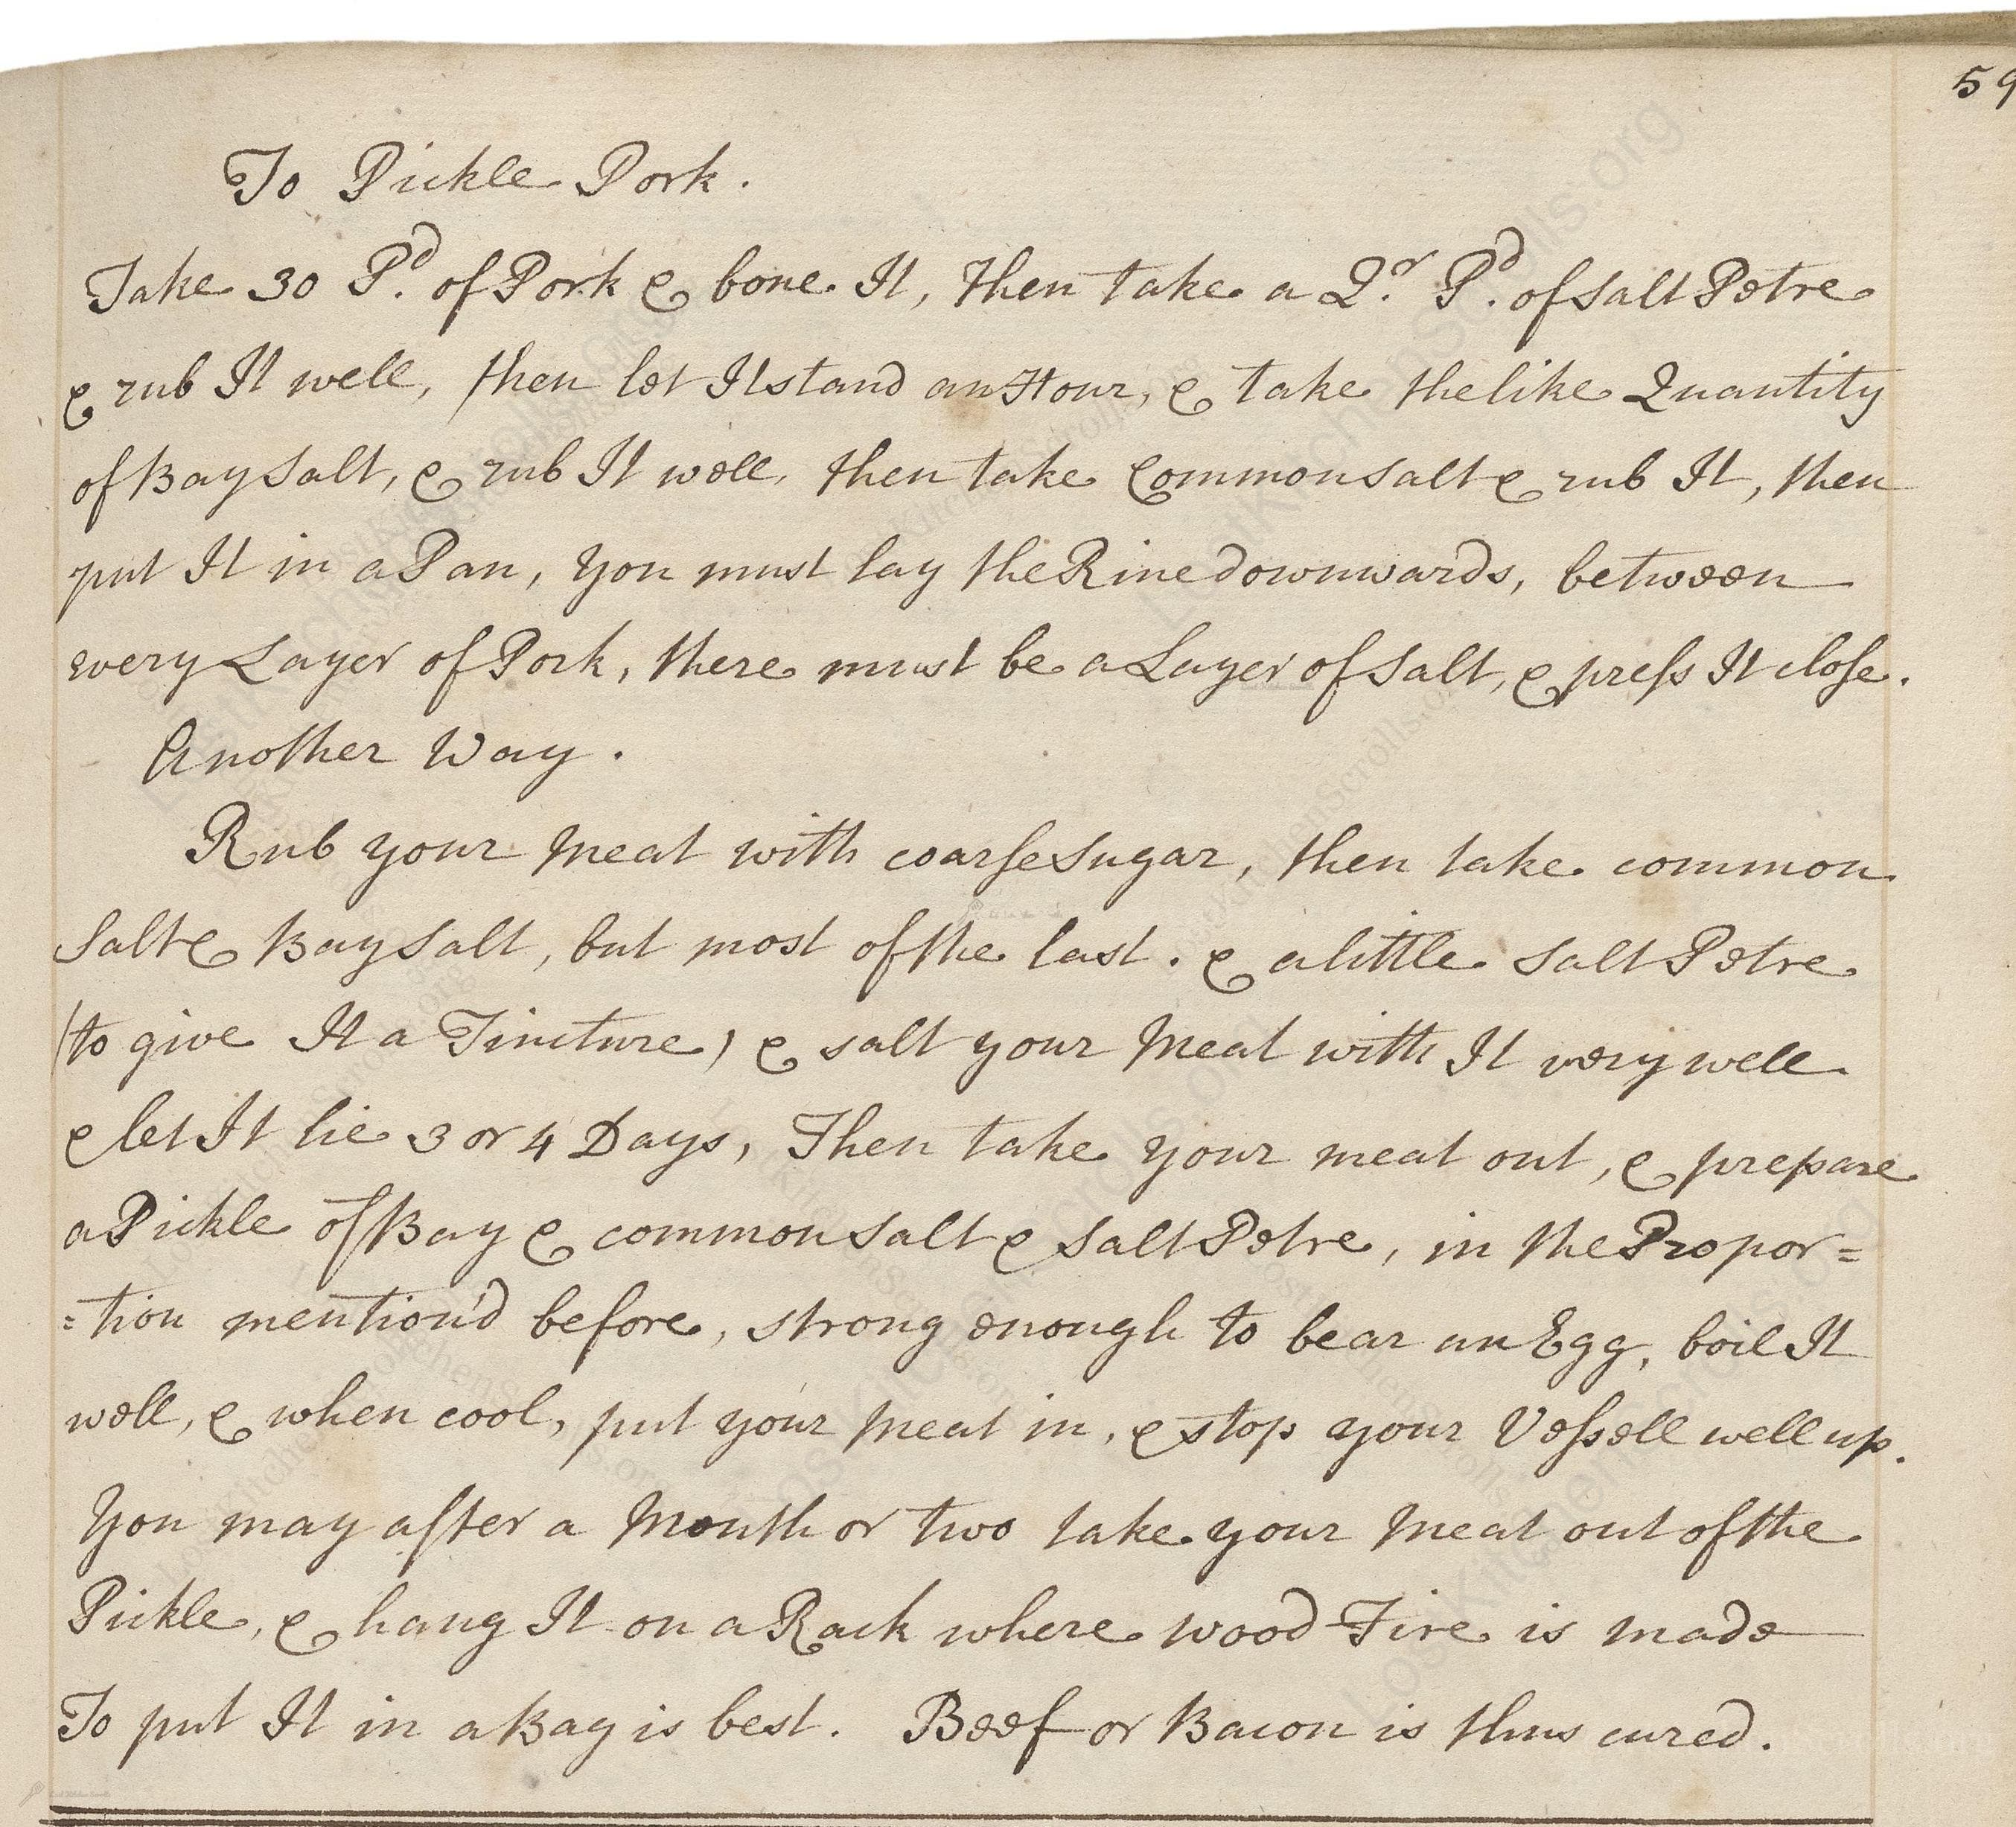 59
To Pickle Pork.
Take 30 Pd. of Pork & bone It, then take a Qr. Pd. of Salt Petre
& rub It well, then let It stand an Hour, & take the like Quantity
of Bay Salt, & rub It well, then take Common Salt & rub It, then
put It in a Pan, you must lay the Rine downwards, between
every Layer of Pork, there must be a Layer of Salt, & preſs It cloſe.
Another Way.
Rub your Meat with coarſe Sugar, then take common
Salt & Bay Salt, but most of the last. & a little Salt Petre
(to give It a Tincture) & salt your Meat with It very well
& let It lie 3 or 4 Days, Then take your meat out, & prepare
a Pickle of Bay & common Salt & Salt Petre, in the Propor=
=tion mention'd before, strong enough to bear an Egg, boil It
well, & when cool, put your Meat in, & stop your Veſsell well up.
You may after a Month or two take your Meat out of the
Pickle, & hang It on a Rack where wood Fire is made
To put It in a Bag is best. Beef or Bacon is thus cured.